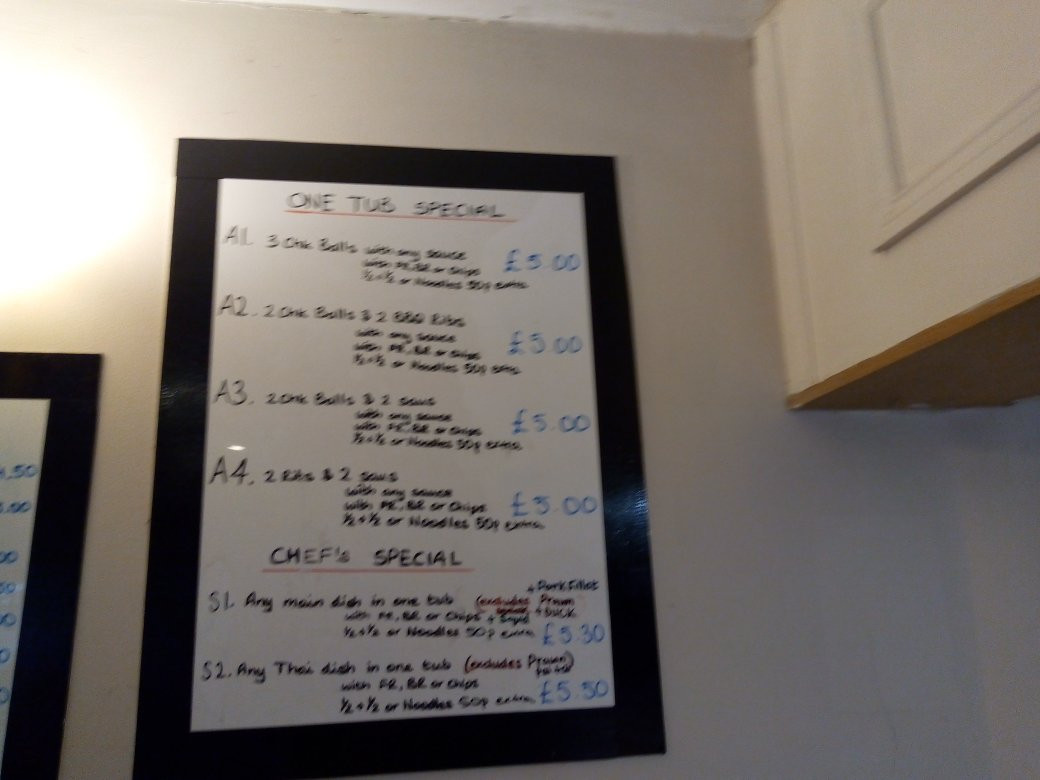 ONE TUB SPECIAL
A1. 3 Chk Balls with any sauce
with FR, BR or Chips £5.00
½+½ or Noodles 50p extra
A2. 2 Chk Balls & 2 BBQ Ribs
with any sauce
with FR, BR or Chips £5.00
½+½ or Noodles 50p extra
A3. 2 Chk Balls & 2
with any sauce
with FR, BR or Chips £5.00
½+½ or Noodles 50p extra
A4. 2 Ribs & 2
with any sauce
with FR, BR or Chips £5.00
½+½ or Noodles 50p extra
CHEF's SPECIAL
+ Pork Fillet
S1. Any main dish in one tub (excludes Prawn
with FR, BR or Chips + Squid + DUCK
½+½ or Noodles 50p extra £5.30
S2. Any Thai dish in one tub (excludes Prawn)
with FR, BR or Chips
½+½ or Noodles 50p extra £5.50
.50
.00
00
50
0
0
0